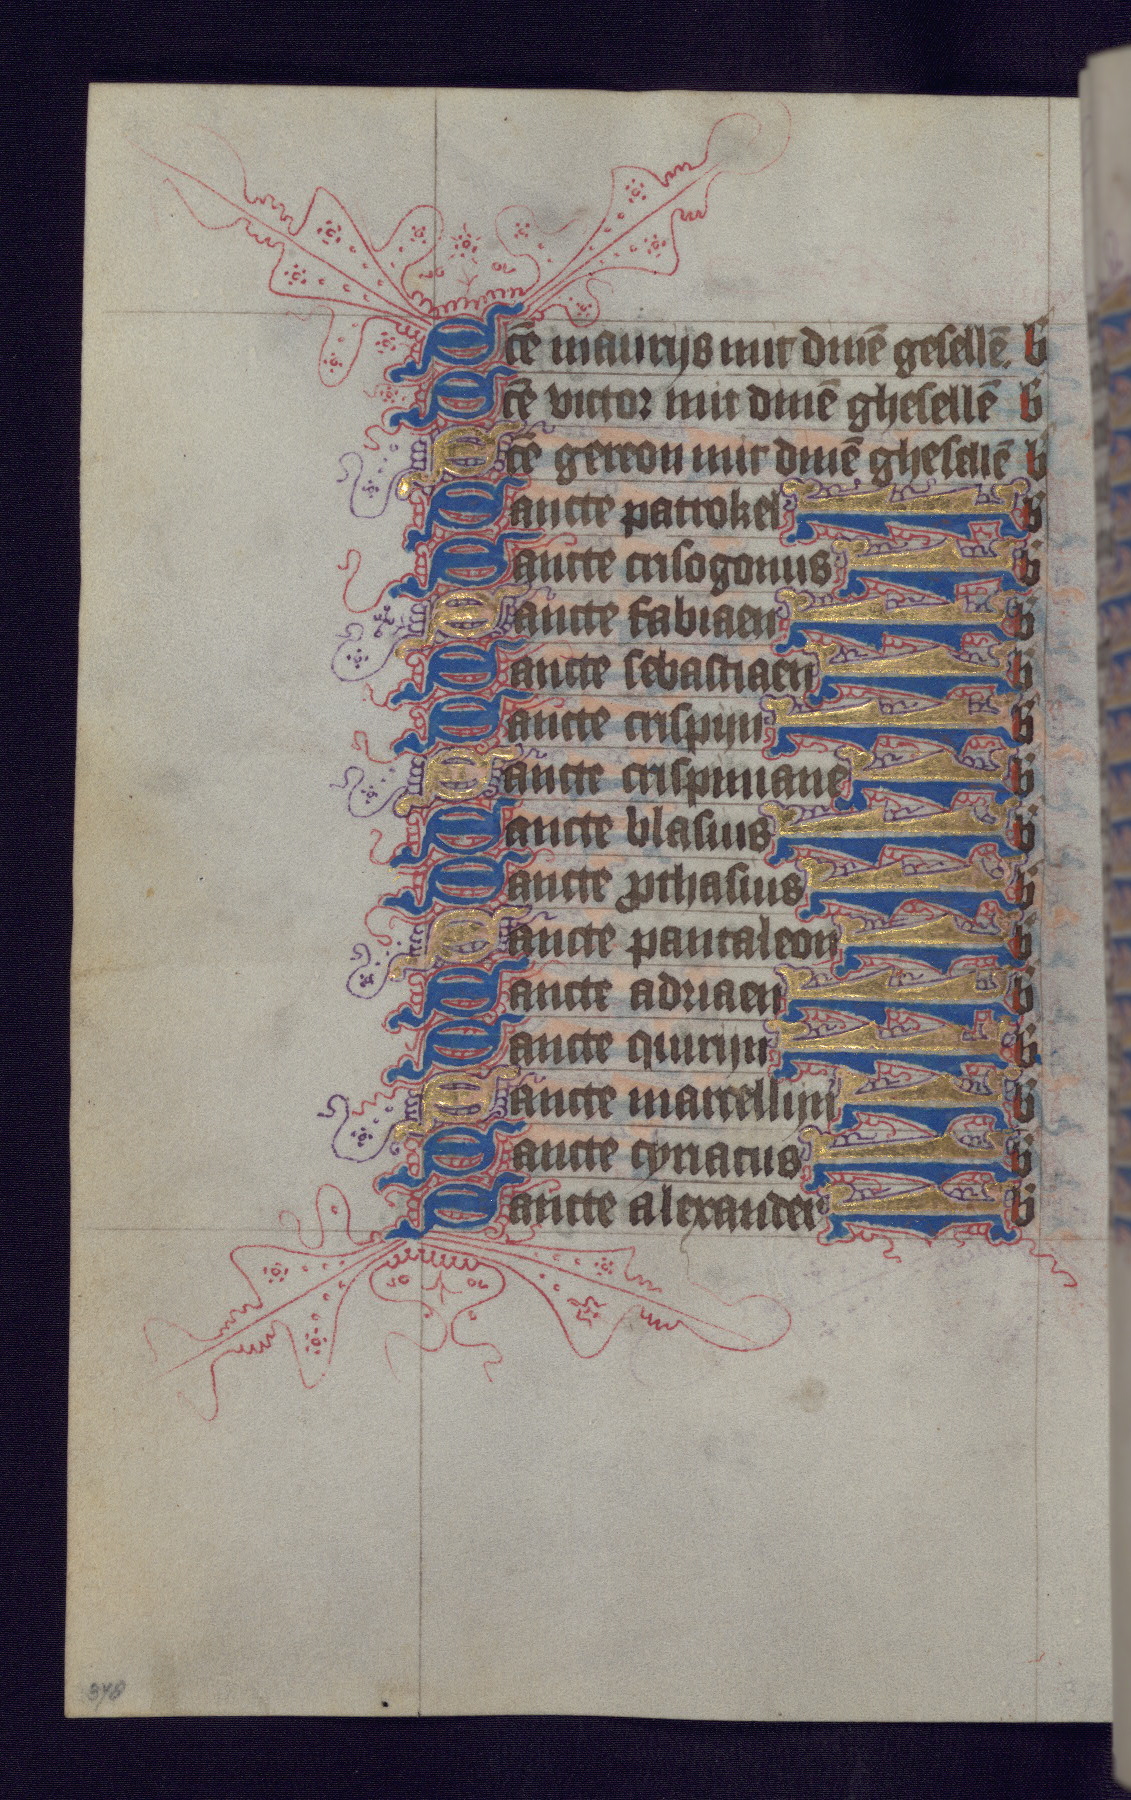 Scē maurijs mit dinē gesellē. b
Scē victor mit dinē ghesellē b
Scē gereon mit dinē ghesellē b
Sancte patrokel b
Sancte crisogonus b
Sancte fabiaen b
Sancte sebastiaen b
Sancte crispijn b
Sancte crispiniane b
Sancte blasius b
Sancte ꝓthasius b
Sancte pantaleon b
Sancte adriaen b
Sancte quirijn b
Sancte marcellijn b
Sancte cyriacus b
Sancte alexander b
378